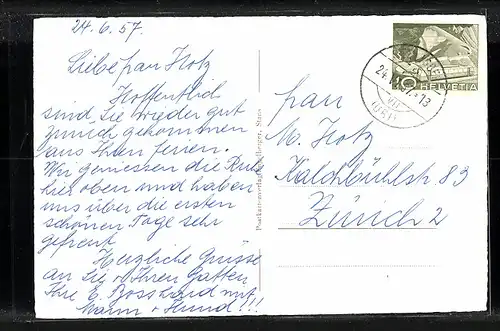 24.6.57.
Liebe Frau Hotz
Hoffentlich
sind Sie wieder gut
zurück gekommen
aus Ihren Ferien.
Wir geniessen die Ruhe
hier oben und haben
uns über die ersten
schönen Tage sehr
gefreut.
Herzliche Grüsse
an Sie u. Ihren Gatten
Ihre E. Bosshard mit
Mann + Hund!!!
Frau
M. Hotz
Kalchbühlstr. 83
Zürich 2
10 HELVETIA
24.
13